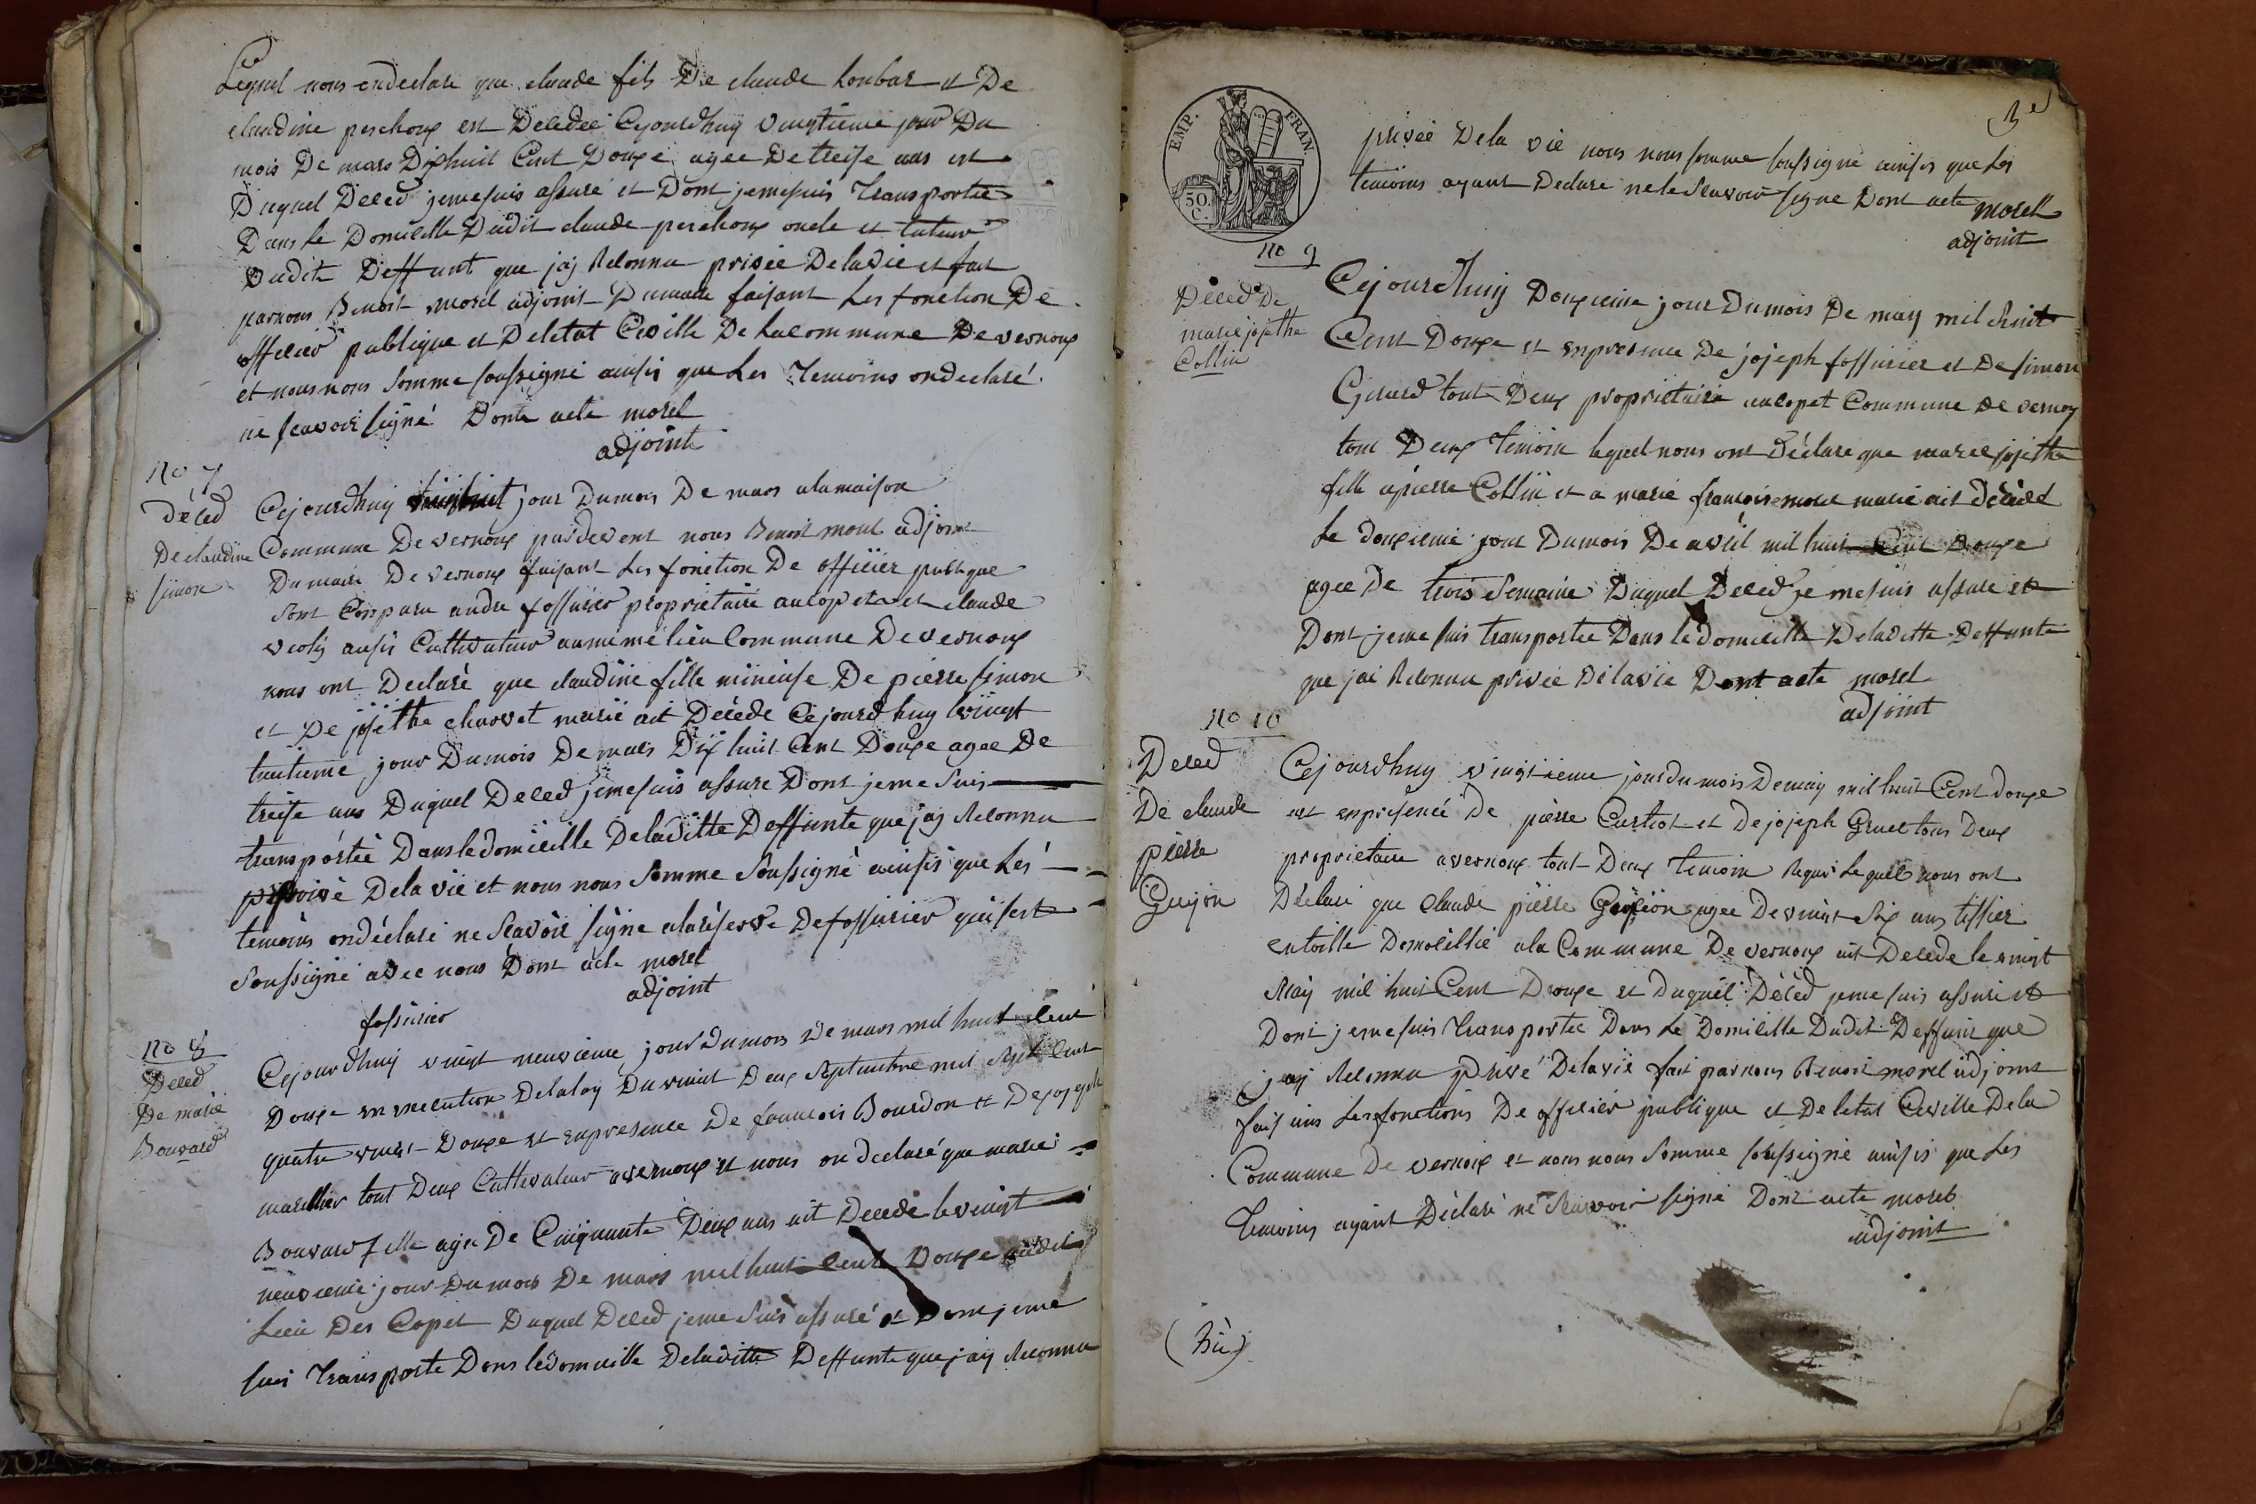 Lequel nous ondeclare que claude fils De claude Loubar et De
claudine perchoux est Decedée Cejourdhuy vingtieme jour Du
mois De mars Dixhuit Cent Douze agee De treise ans est
Duquel Deced jemesuis assuré et Dont jemesuis Transportée
Dans Le Domicille Dudit claude perchoux oncle et tuteur
Dudit Deffunt que jaj Reconnu privée De lavie et fait
parnous Benoit morel adjoint Dumaire faisant Les fonction De
officier publique et Deletat Civille De Lacommune De vernoux
et nous nous Somme soussigné ainsis que Les Temoins ondeclaré
ne scavoir signé Donte acte morel
adjoint
No 7
Déced
De claudine
simon
Cejourdhuy jour Dumois De mars alamaison
Commune De vernoux pardevent nous Benoit morel adjoint
Dumaire De vernoux faisant Les fonction De officier publique
sont Comparu andre fossurier proprietaire aucopet et claude
violy ausis Cultivateur aumemé lieu Commune De vernoux
nous ont Declaré que claudine fille mineuse De pierre simon
et De josethe charvet marie ait Décéde Cejourdhuy vingt
huitieme jour Dumois De mars Dix huit Cent Douze agee De
treise ans Duquel Deced jemesuis assure Dont jeme Suis
transportée Dans ledomicille Deladitte Deffunte que jaj Reconnu
privé Dela vie et nous nous Somme Soussigné ainsis que Les
temoins ondéclaré ne Scavoir signe alaréserve De fossurier qui sest
Soussigné avec nous Dont acte morel
adjoint
fossurier
No 8
Deced
De marie
Bouvard
Cejourdhuy vingt neuvieme jour Dumois De mars mil huit Cent
Douze en execution Delaloy Duvint Deux Septembre mil Sept Cent
quatre vingt Douze et enpresence De francois Bourdon et Dejojeph
marillier tout Deux Cultivateur avernoux et nous on declaré que marie
Bouvard fille agee De Cinquante Deux ans ait Decede le vingt
neuvieme jour Dumois De mars mil huit Cent Douze audit
Lieu Des Copet Duquel Deced jeme Suis assuré et Dont jeme
suis Transporte Dans ledomicille Deladitte Deffunte que jaij Reconnu
3e
EMP. FRAN.
50 C.
privée Dela vie nous nous somme soussigné ainsis que Les
temoins ayant Declare ne le Scavoir signe Dont acte morel
adjoint
No 9
Déced De
marie josethe
Collin
Cejourdhuij Douzieme jour Dumois De may mil huit
Cent Douze et enpresence De jojeph fossurier et De simon
Girard tout Deux proprietaire aucopet Commune De vernoy
tout Deux Temoin lequel nous ont Déclare que marie josethe
fille apierre Collin et a marie francoise morel marie ait Décédé
Le douzieme jour Dumois De avril mil huit Cent Douze
agee De trois Semaine Duquel Deced je mesuis assure et
Dont jeme suis transportée Dans le domicille Deladitte Deffunte
que jai Reconnu privée Delavie Dont acte morel
adjoint
No 10
Deced
De claude
pierre
Guyon
Cejourdhuy vingtieme jour du mois Demay mil huit Cent douze
est enpresencé De pierre Curtiot et Dejojeph Gruel tous Deux
proprietaire avernoux tout Deux temoin Requi Lequel nous ont
Déclaré que Claude pierre Guyon agee De vingt Six ans tissier
entoille Domoicillié ala Commune De vernoux ait Decede le vingt
May mil huit Cent Douze et Duquel Déced jeme suis assuré et
Dont jeme suis Transportée Dans Le Domicille Dudit Deffunt que
jaij Reconnu privé Delavie fait parnous Benoit morel adjoint
faisans Les fonctions De officier publique et De letat Civille Dela
Commune De vernoix et nous nous Somme soussigné ainsis que Les
Temoins ayant Déclaré né Scavoir signé Dont acte morel
adjoint